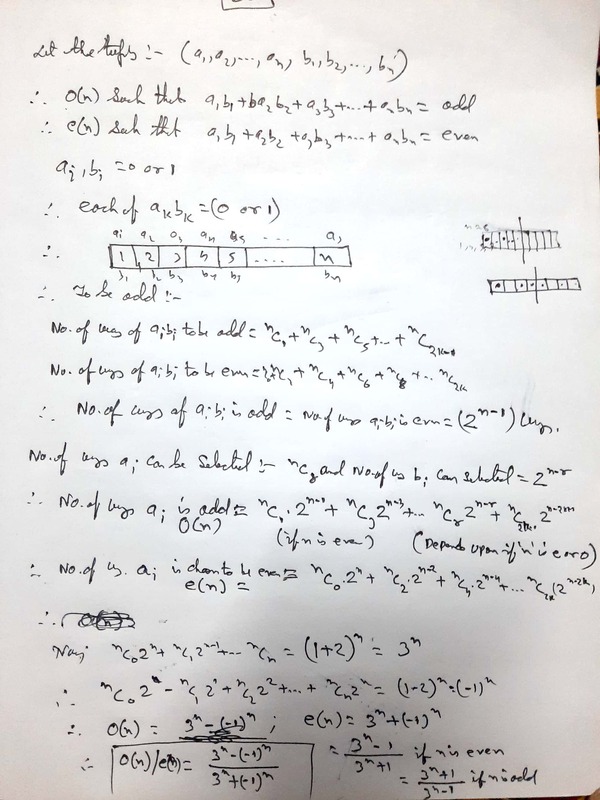 Let the tuples :- (a₁, a₂, ..., aₙ, b₁, b₂, ..., bₙ)
∴ O(n) such that a₁b₁ + a₂b₂ + a₃b₃ + ... + aₙbₙ = odd
∴ e(n) such tht a₁b₁ + a₂b₂ + a₃b₃ + ... + aₙbₙ = even
aᵢ, bᵢ = 0 or 1
∴ each of aₖbₖ = (0 or 1)
a₁ a₂ a₃ a₄ a₅ ....
∴ 1 2 3 4 5 .... n
b₁ b₂ b₃ b₄ b₅ bₙ
∴ To be odd :-
No. of ways of aᵢbᵢ to be odd = ⁿC₁ + ⁿC₃ + ⁿC₅ + ... +
No. of ways of aᵢbᵢ to be even = + ⁿC₄ + ⁿC₆ + ⁿC₈ + ... ⁿC₂ₖ
∴ No. of ways of aᵢbᵢ is odd = No of ways aᵢbᵢ is even = (2ⁿ⁻¹) ways.
No. of ways aᵢ can be selected :- ⁿCᵣ and No. of ways bᵢ can selected = 2ⁿ⁻ʳ
∴ No. of ways aᵢ is odd = ⁿC₁·2ⁿ⁻¹ + ⁿC₃2ⁿ⁻³ + ... ⁿCᵣ2ⁿ⁻ʳ +
O(n) (if n is even) (Depends upon if 'n' is e or o)
∴ No. of ws. aᵢ is chosen to be even = ⁿC₀·2ⁿ + ⁿC₂·2ⁿ⁻² + ⁿC₄·2ⁿ⁻⁴ + ...
e(n) =
∴
Now; ⁿC₀2ⁿ + ⁿC₁2ⁿ⁻¹ + ... ⁿCₙ = (1+2)ⁿ = 3ⁿ
∴ ⁿC₀2⁰ - ⁿC₁2¹ + ⁿC₂2² + ... + ⁿCₙ2ⁿ = (1-2)ⁿ = (-1)ⁿ
∴ O(n) = 3ⁿ - (-1)ⁿ ; e(n) = 3ⁿ + (-1)ⁿ
∴ O(n)/e(n) = (3ⁿ - (-1)ⁿ)/(3ⁿ + (-1)ⁿ) = (3ⁿ - 1)/(3ⁿ + 1) if n is even
= (3ⁿ + 1)/(3ⁿ - 1) if n is odd